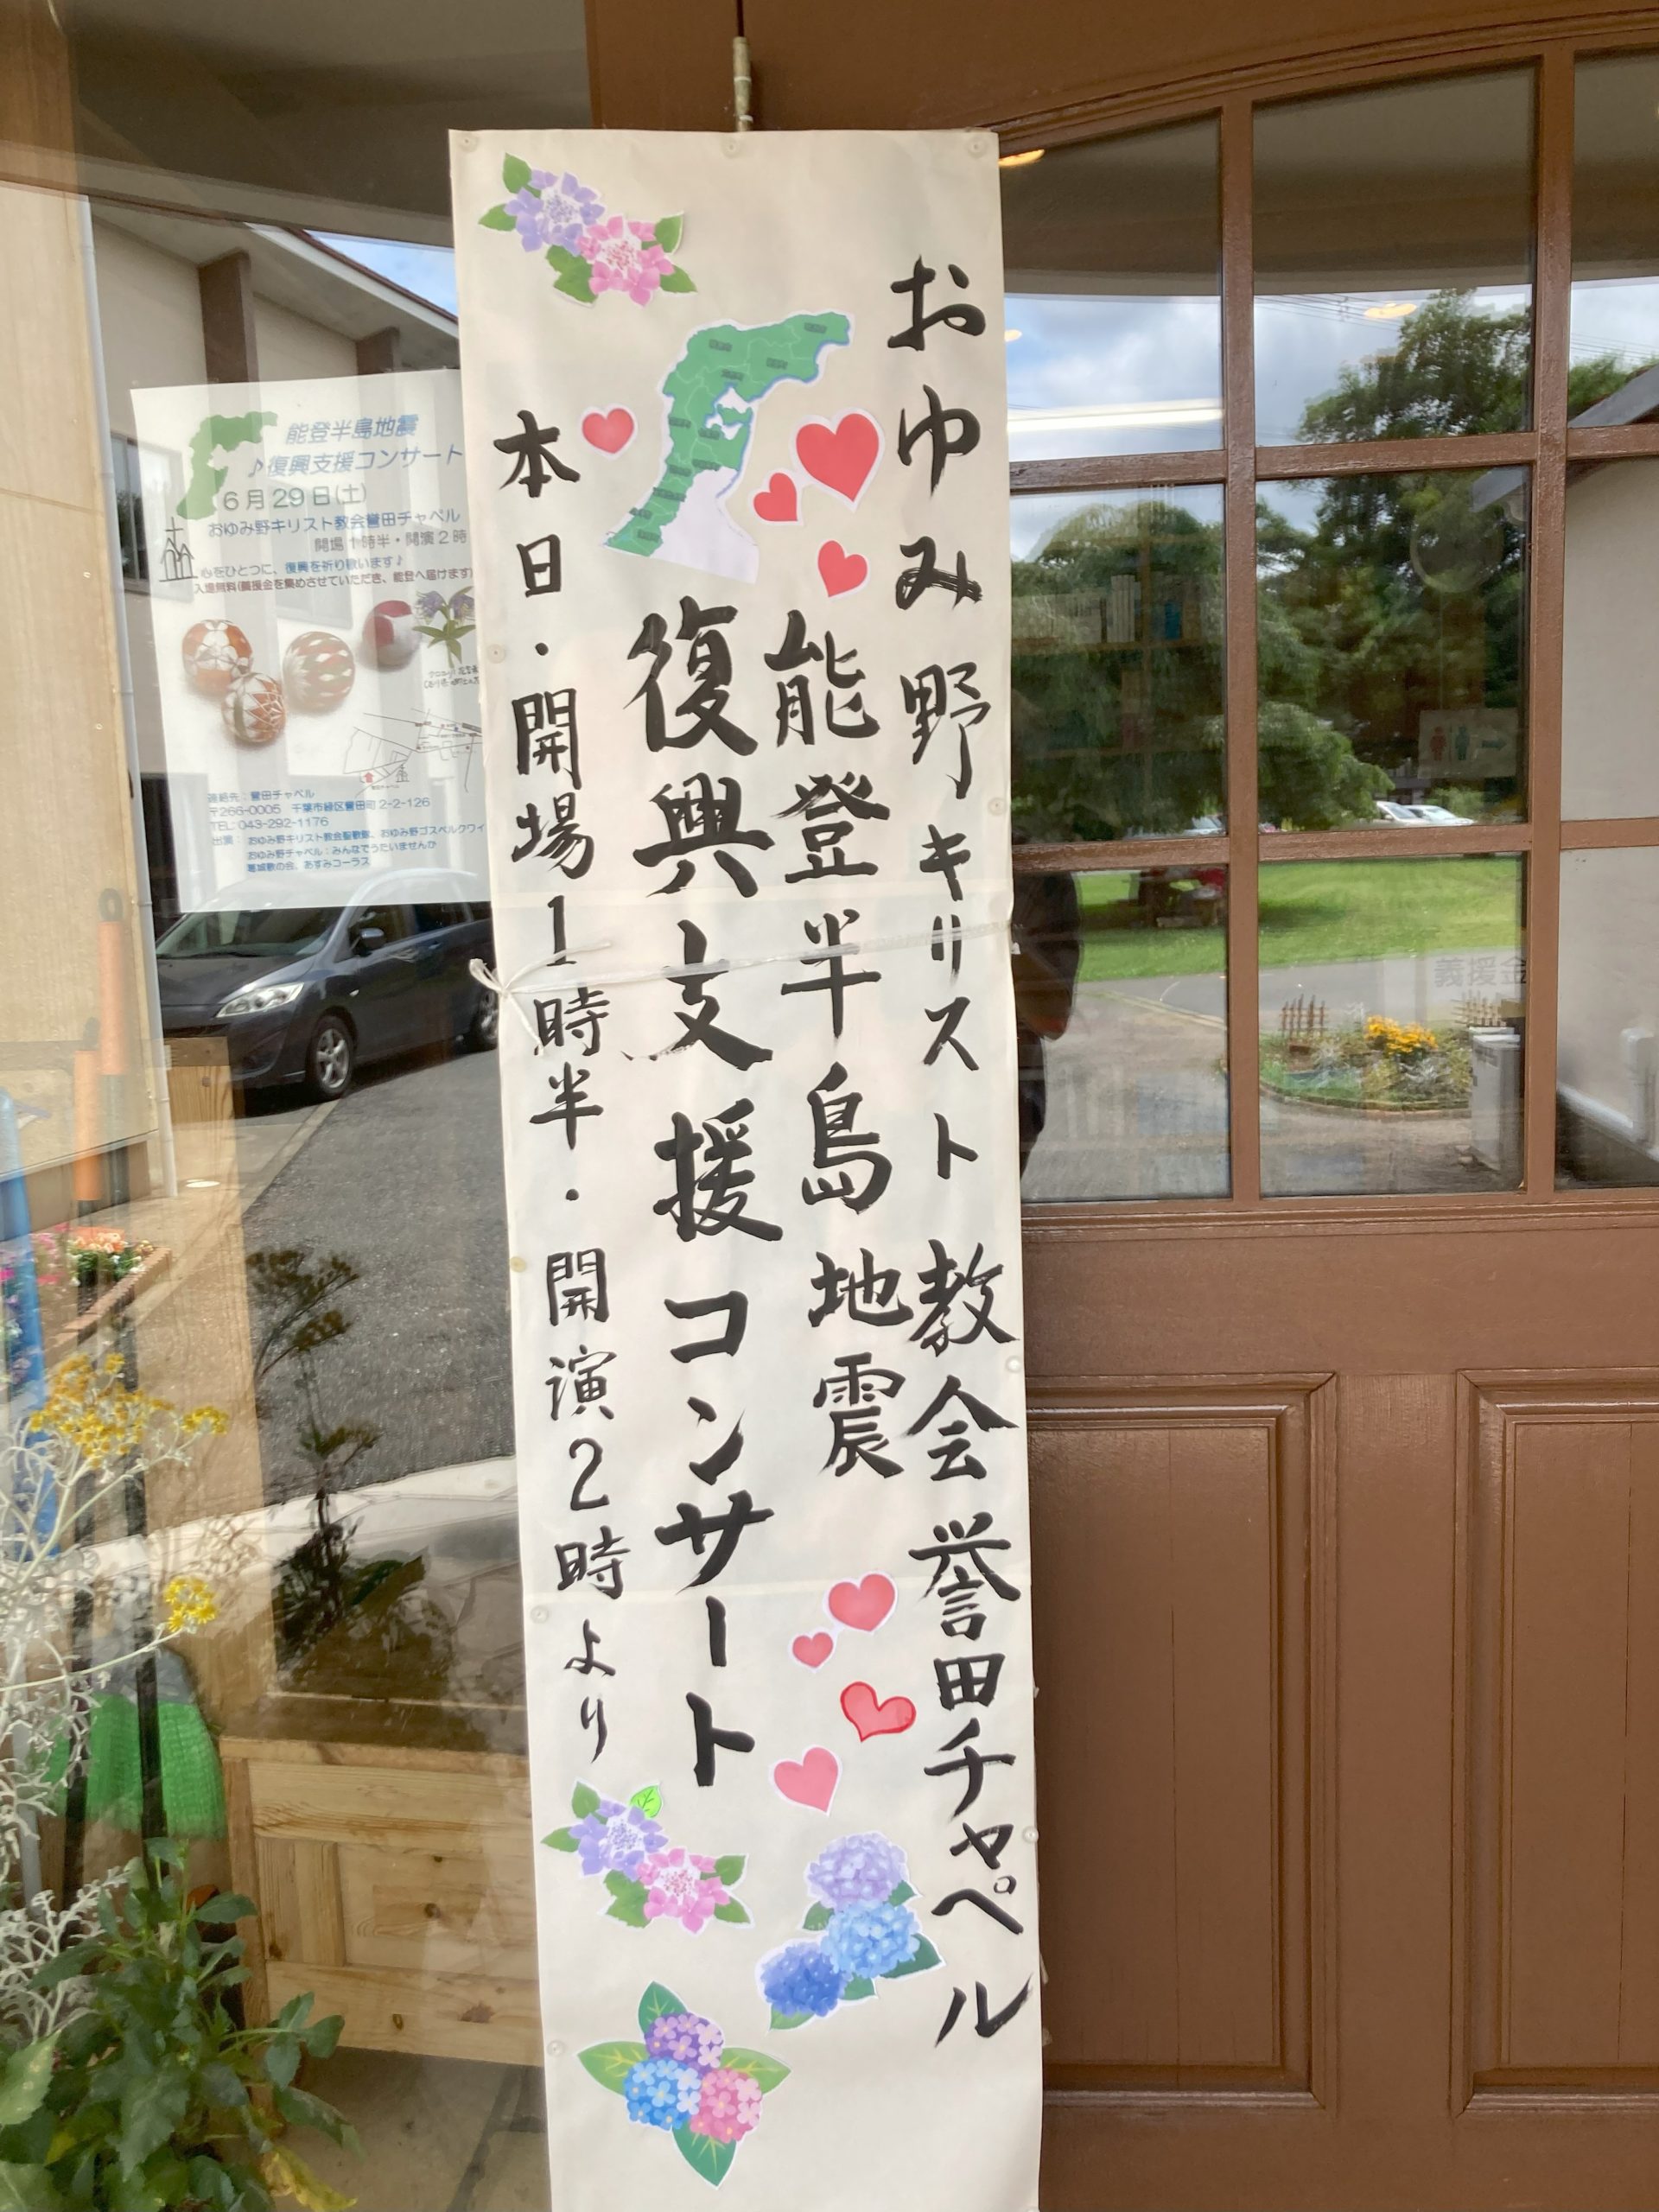 おゆみ野キリスト教会誉田チャペル
能登半島地震
復興支援コンサート
本日・開場1時半・開演2時より
能登半島地震
♪復興支援コンサート
6月29日(土)
おゆみ野キリスト教会誉田チャペル
開場1時半・開演2時
心をひとつに、復興を祈り歌います♪
入場無料(義援金を集めさせていただき、能登へ届けます)
連絡先:誉田チャペル
〒266-0005 千葉市緑区誉田町2-2-126
TEL:043-292-1176
出演: おゆみ野キリスト教会聖歌隊、おゆみ野ゴスペルクワイ
おゆみ野チャペル:みんなでうたいませんか
葛城歌の会、あすみコーラス
義援金